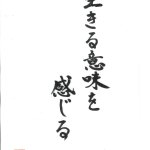 生きる意味を
感じる